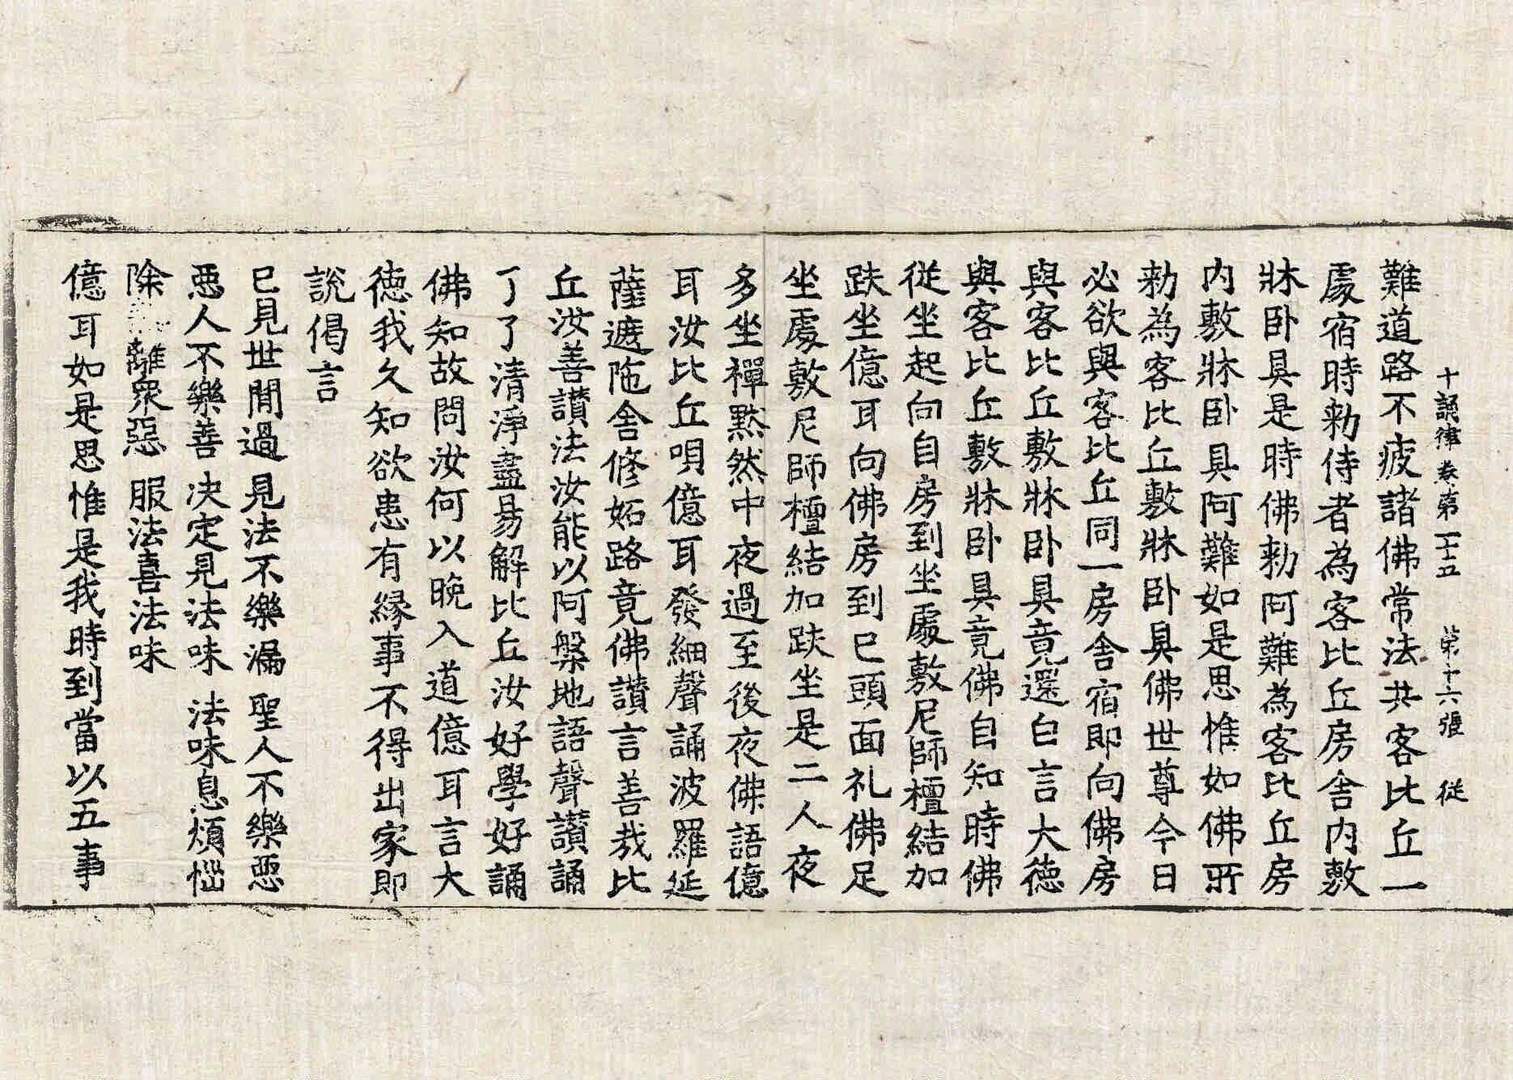 十誦律卷第二十五　第十六張　從
難道路不疲諸佛常法共客比丘一
處宿時勑侍者為客比丘房舍内敷
牀卧具是時佛勑阿難為客比丘房
内敷牀卧具阿難如是思惟如佛所
勑為客比丘敷牀卧具佛世尊今日
必欲與客比丘同一房舍宿即向佛房
與客比丘敷牀卧具竟還白言大徳
與客比丘敷牀卧具竟佛自知時佛
從坐起向自房到坐處敷尼師檀結加
趺坐億耳向佛房到已頭面礼佛足
坐處敷尼師檀結加趺坐是二人夜
多坐禪黙然中夜過至後夜佛語億
耳汝比丘唄億耳發細聲誦波羅延
薩遮陁舍修妬路竟佛讃言善哉比
丘汝善讃法汝能以阿槃地語聲讃誦
了了清淨盡易解比丘汝好學好誦
佛知故問汝何以晚入道億耳言大
徳我久知欲患有縁事不得出家即
說偈言
已見世間過　見法不樂漏　聖人不樂惡
惡人不樂善　决定見法味　法味息煩惱
除離衆惡　服法喜法味
億耳如是思惟是我時到當以五事